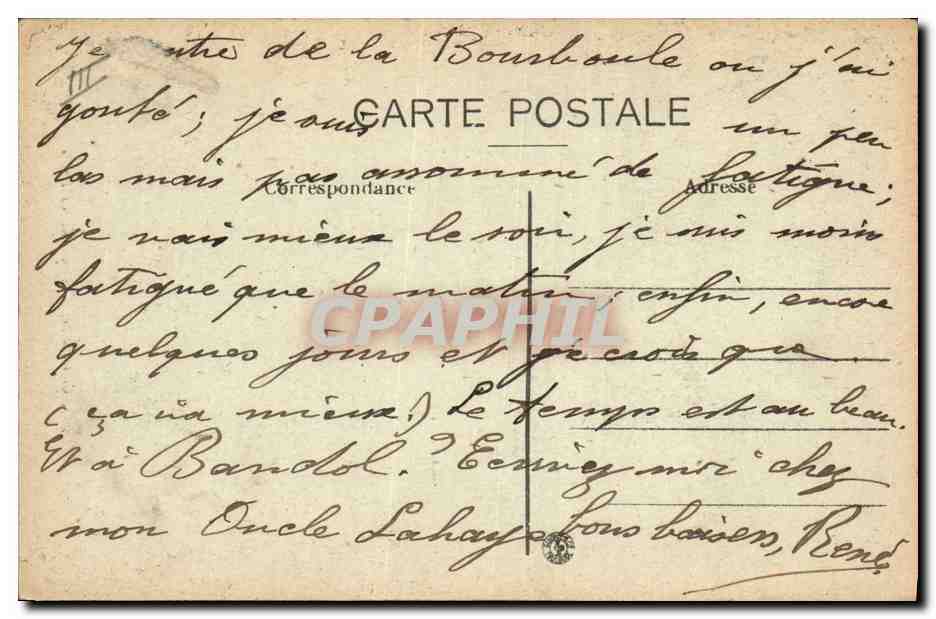 Je rentre de la Bourboule ou j'ai
III
gouté; je suis un peu
CARTE POSTALE
las mais pas assommé de fatigue;
Correspondance Adresse
je vais mieux le soir, je suis moins
fatigué que le matin; enfin, encore
CPAPHIL
quelques jours et je crois que
(ça va mieux!) Le temps est au beau.
Et à Bandol? Ecrivez moi chez
mon Oncle Lahaye bons baisers, René